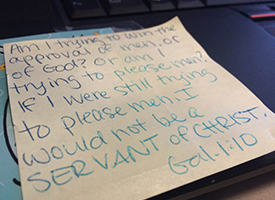 Am I trying to win the
approval of men, or
of God? or am I
trying to please men?
If I were still trying
to please men, I
would not be a
SERVANT of CHRIST.
Gal. 1:10